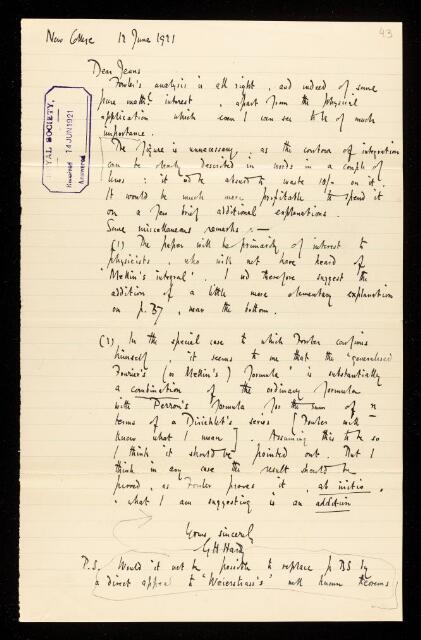 43
New College 12 June 1921
ROYAL SOCIETY.
Received 14 JUN 1921
Answered
Dear Jeans
Fowler's analysis is all right, and indeed of some
pure math. interest, apart from the physical
application which even I can see to be of much
importance.
The figure is unnecessary, as the contour of integration
can be clearly described in words in a couple of
lines: it wd be absurd to waste 10/- on it.
It would be much more profitable to spend it
on a few brief additional explanations.
Some miscellaneous remarks :—
(1) The paper will be primarily of interest to
physicists, who will not have heard of
'Mellin's integral'. I wd therefore suggest the
addition of a little more elementary explanation
on p. B7, near the bottom.
(2) In the special case to which Fowler confines
himself, it seems to me that the "generalised
Fourier's (or Mellin's) formula" is substantially
a combination of the ordinary formula
with Perron's formula for the sum of n
terms of a Dirichlet's series [Fowler will
know what I mean]. Assuming this to be so
I think it should be pointed out. But I
think in any case the result should be
proved, as Fowler proves it, ab initio,
what I am suggesting is an addition
Yours sincerely
G H Hardy
P.S. Would it not be possible to replace p B5 by
a direct appeal to "Weierstrass's" well known theorems